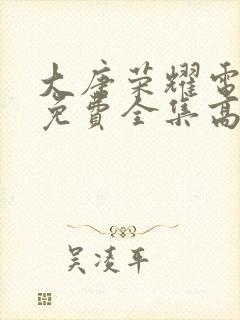 大唐荣耀電
免費全集高
吴凌平